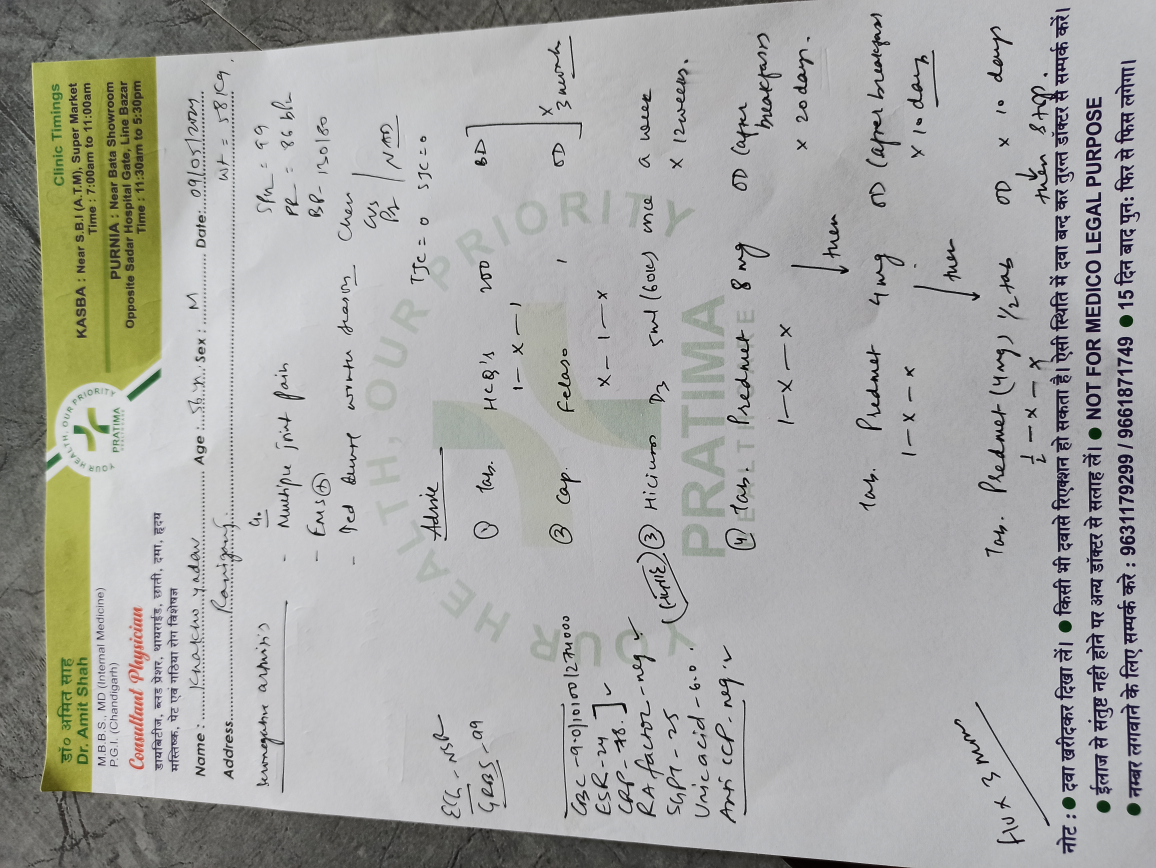 डॉ० अमित साह
Dr. Amit Shah
M.B.B.S., MD (Internal Medicine)
P.G.I. (Chandigarh)
Consultant Physician
डायबिटीज, ब्लड प्रेशर, थायराईड, छाती, दमा, हृदय
मस्तिष्क, पेट एवं गठिया रोग विशेषज्ञ
YOUR HEALTH, OUR PRIORITY
PRATIMA
Clinic Timings
KASBA : Near S.B.I (A.T.M), Super Market
Time : 7:00am to 11:00am
PURNIA : Near Bata Showroom
Opposite Sadar Hospital Gate, Line Bazar
Time : 11:30am to 5:30pm
Name : yadav Age : 56 yr. Sex : M Date: 09/05/2024
Address Raniganj. Wt = 58 Kg.
Seronegative arthritis
- Multiple joint pain
- EMS (+)
SPO2 = 99
PR = 86 bpm
BP - 130/80
Chest
CVS
P/A / NAD
TJC = 0 SJC = 0
ECG - NSR
GRBS - 99
CBC - 9.0/10100/274000
ESR - 24
CRP - 78.
RA factor - neg ✓
SGPT - 25
Uric acid - 6.0.
Anti CCP - neg. ✓
Advice
① Tab. HCQ's 200 BD
1 - x - 1
② Cap. Felaso 1 OD x 3 month
x - 1 - x
③ D3 5ml (60K) once a week
x 12 weeks.
④ Tab. Predmet 8 mg OD (after breakfast)
1 - x - x x 20 days.
↓ then
Tab. Predmet 4 mg OD (after breakfast)
1 - x - x x 10 days
↓ then
Tab. Predmet (4mg) 1/2 tab OD x 10 days
½ - x - x then stop.
F/U x 3 mon
YOUR HEALTH, OUR PRIORITY
PRATIMA
HEALTHCARE
नोट : ● दवा खरीदकर दिखा लें। ● किसी भी दवासे रिएक्शन हो सकता है। ऐसी स्थिति में दवा बन्द कर तुरन्त डॉक्टर से सम्पर्क करें।
● ईलाज से संतुष्ट नही होने पर अन्य डॉक्टर से सलाह लें। ● NOT FOR MEDICO LEGAL PURPOSE
● नम्बर लगवाने के लिए सम्पर्क करे : 9631179299 / 9661871749 ● 15 दिन बाद पुन: फिर से फिस लगेगा।